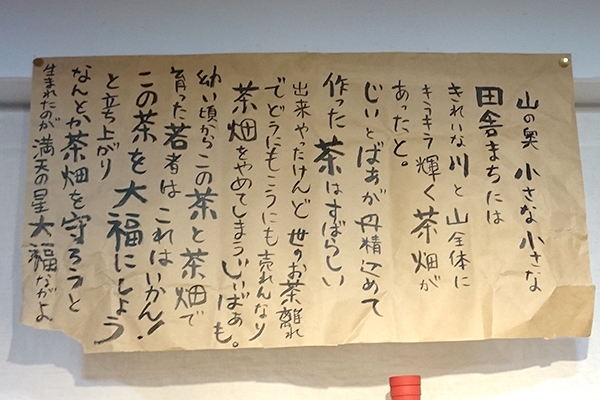 山の奥 小さな小さな
田舎まちには
きれいな川と山全体に
キラキラ輝く茶畑が
あったと。
じぃとばぁが丹精込めて
作った茶はすばらしい
出来やったけんど 世のお茶離れ
でどうにもこうにも売れんなり
茶畑をやめてしまうじぃばぁも。
幼い頃からこの茶と茶畑で
育った若者は これはいかん!
この茶を大福にしよう
と立ち上がり
なんとか茶畑を守ろうと
生まれたのが満天の星大福ながよ